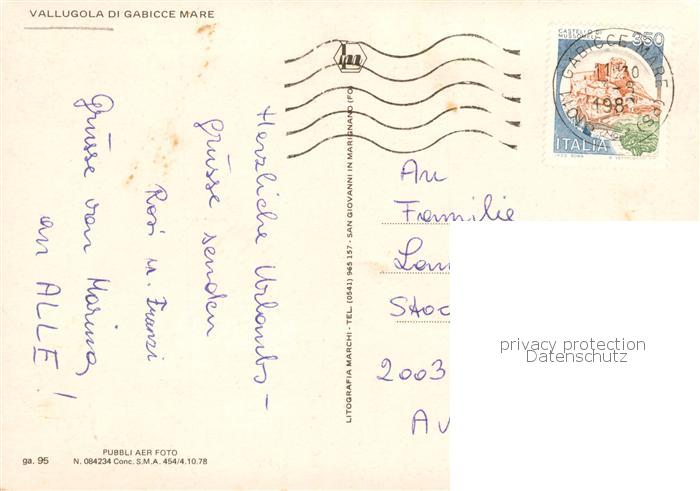 VALLUGOLA DI GABICCE MARE
Herzliche Urlaubs-
grüsse senden
Rosi u. Franzi
Grüsse von Marina
an ALLE!
LITOGRAFIA MARCHI - TEL. (0541) 965 157 - SAN GIOVANNI IN MARIGNANO (FO)
CASTELLO DI
MUSSOMELI
350
ITALIA
GABICCE MARE
(PS)
An
Familie
2003
privacy protection
Datenschutz
PUBBLI AER FOTO
ga. 95
N. 084234 Conc. S.M.A. 454/4.10.78